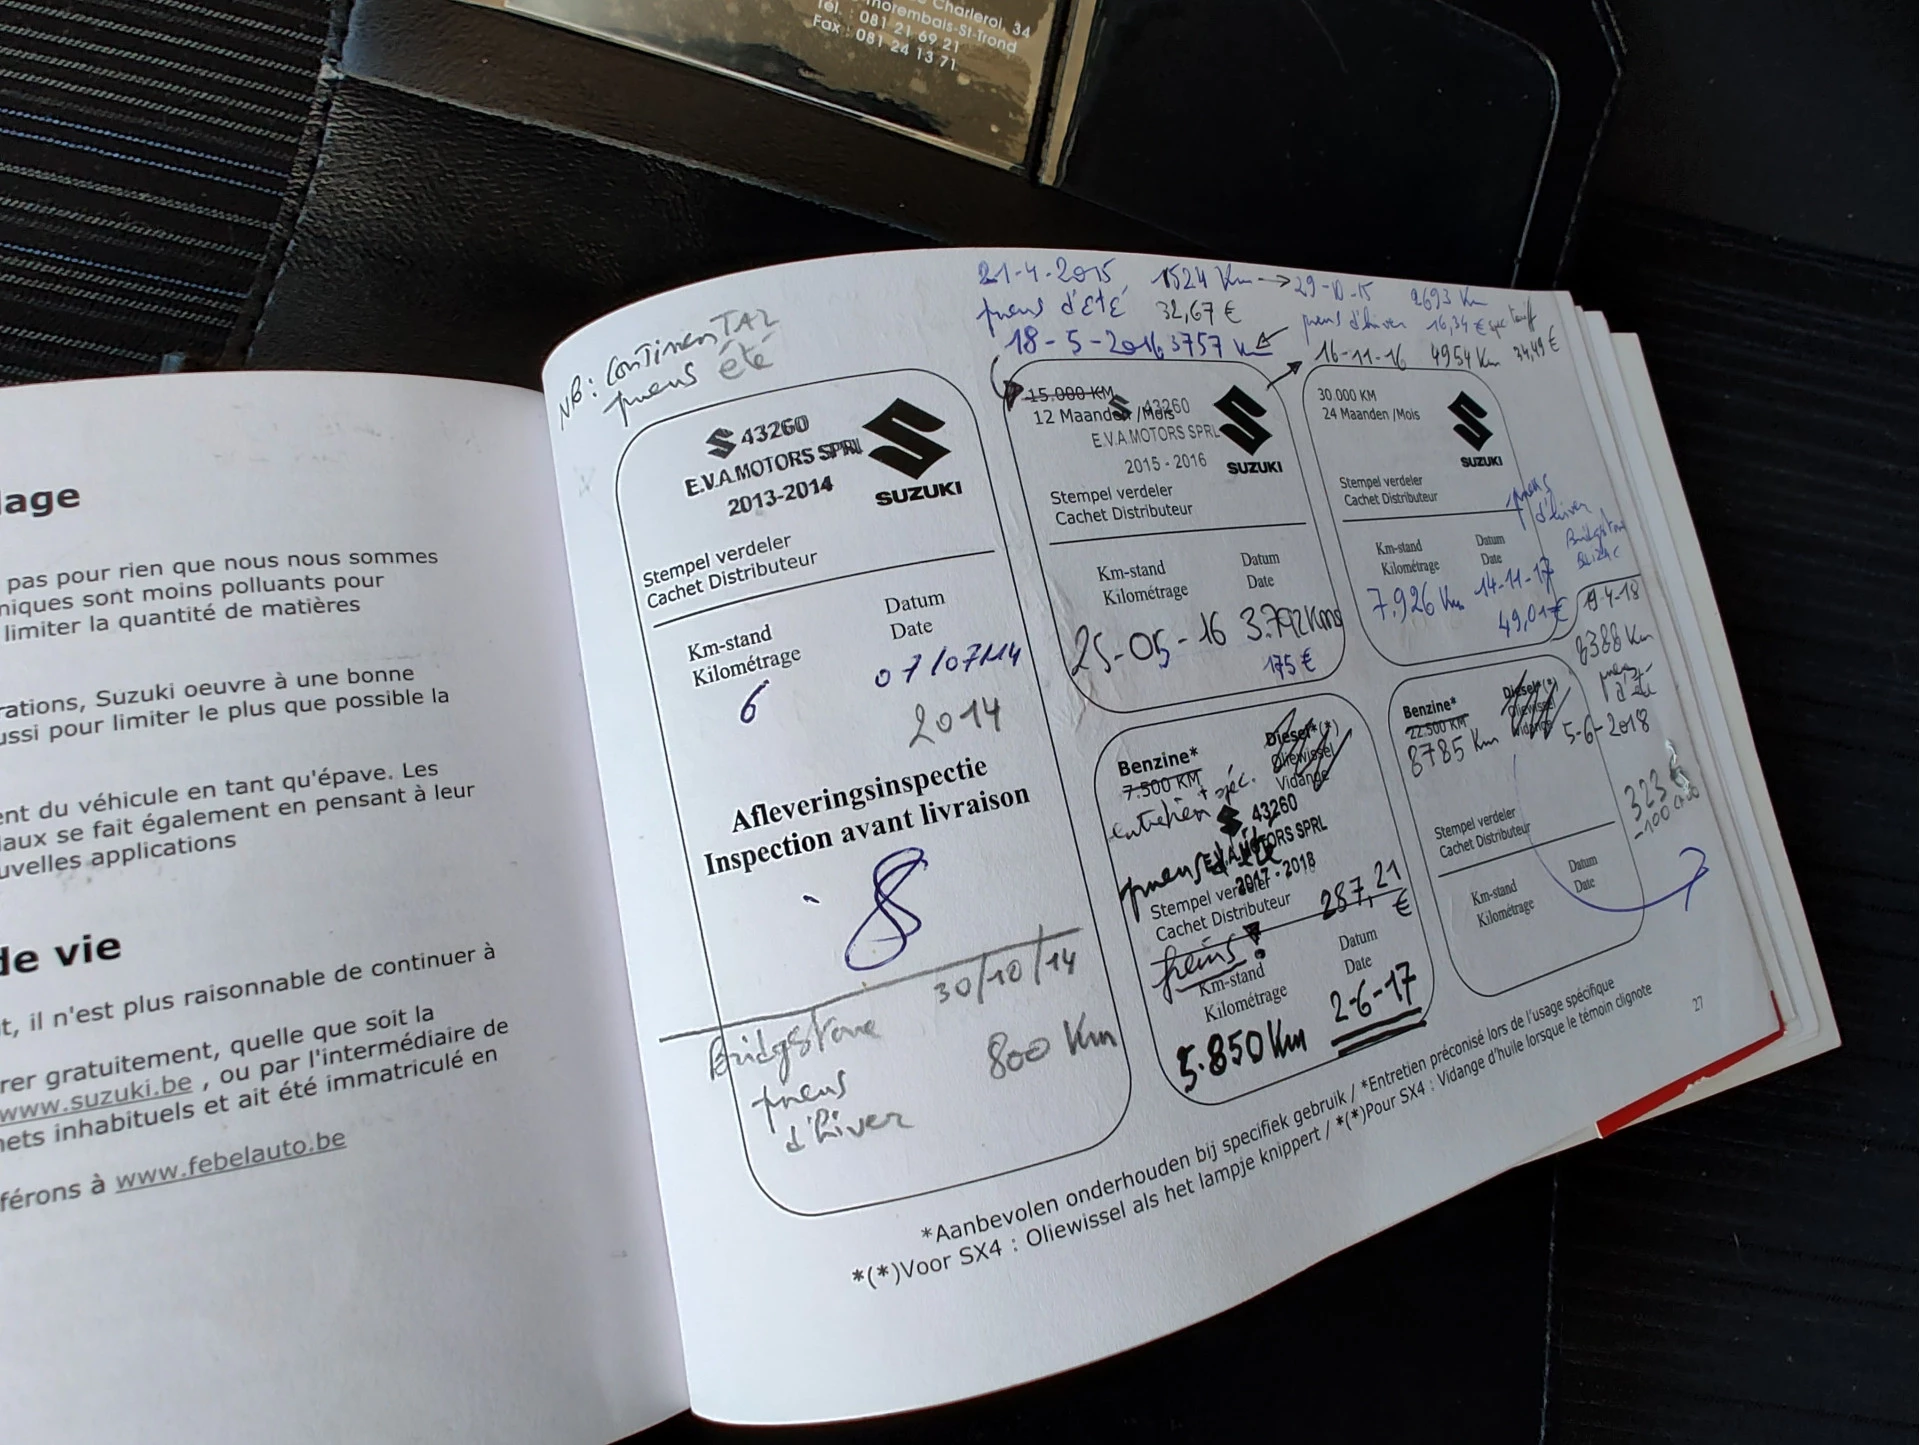 Charleroi, 34
Thorembais-St-Trond
Tél. : 081 21 69 21
Fax : 081 24 13 71
lage
pas pour rien que nous nous sommes
niques sont moins polluants pour
limiter la quantité de matières
rations, Suzuki oeuvre à une bonne
ussi pour limiter le plus que possible la
ent du véhicule en tant qu'épave. Les
laux se fait également en pensant à leur
uvelles applications
de vie
t, il n'est plus raisonnable de continuer à
rer gratuitement, quelle que soit la
www.suzuki.be , ou par l'intermédiaire de
nets inhabituels et ait été immatriculé en
férons à www.febelauto.be
NB : ContinenTAL
pneus été
21-4-2015 1524 Km → 29-10-15 2693 Km
pneus d'été 32,67 € pneus d'hiver 16,34 €
18-5-2016 3757 Km 16-11-16 4954 Km 34,49 €
43260
E.V.A.MOTORS SPRL
2013-2014
SUZUKI
Stempel verdeler
Cachet Distributeur
Km-stand Datum
Kilométrage Date
6 07/07/14
2014
Afleveringsinspectie
Inspection avant livraison
30/10/14
Bridgstone 800 Km
pneus
d'hiver
15.000 KM
12 Maanden /Mois
43260
E.V.A.MOTORS SPRL
2015 - 2016
SUZUKI
Stempel verdeler
Cachet Distributeur
Km-stand Datum
Kilométrage Date
25-05-16 3.792 Kms
175 €
30.000 KM
24 Maanden /Mois
SUZUKI
Stempel verdeler
Cachet Distributeur
pneus
d'hiver
Km-stand Datum
Kilométrage Date
7.926 Km 14-11-17
49,01 €
8388 Km
Benzine* Diesel*(*)
7.500 KM Oliewissel
Vidange
entretien
43260
E.V.A.MOTORS SPRL
2017 - 2018
pneus été
Stempel verdeler
Cachet Distributeur
287,21
€
freins !
Km-stand Datum
Kilométrage Date
5.850 Km 2-6-17
Benzine* Diesel*(*)
22.500 KM Oliewissel
Vidange
8785 Km 5-6-2018
323 €
Stempel verdeler
Cachet Distributeur
Km-stand Datum
Kilométrage Date
*Aanbevolen onderhouden bij specifiek gebruik / *Entretien préconisé lors de l'usage spécifique
*(*)Voor SX4 : Oliewissel als het lampje knippert / *(*)Pour SX4 : Vidange d'huile lorsque le témoin clignote
27